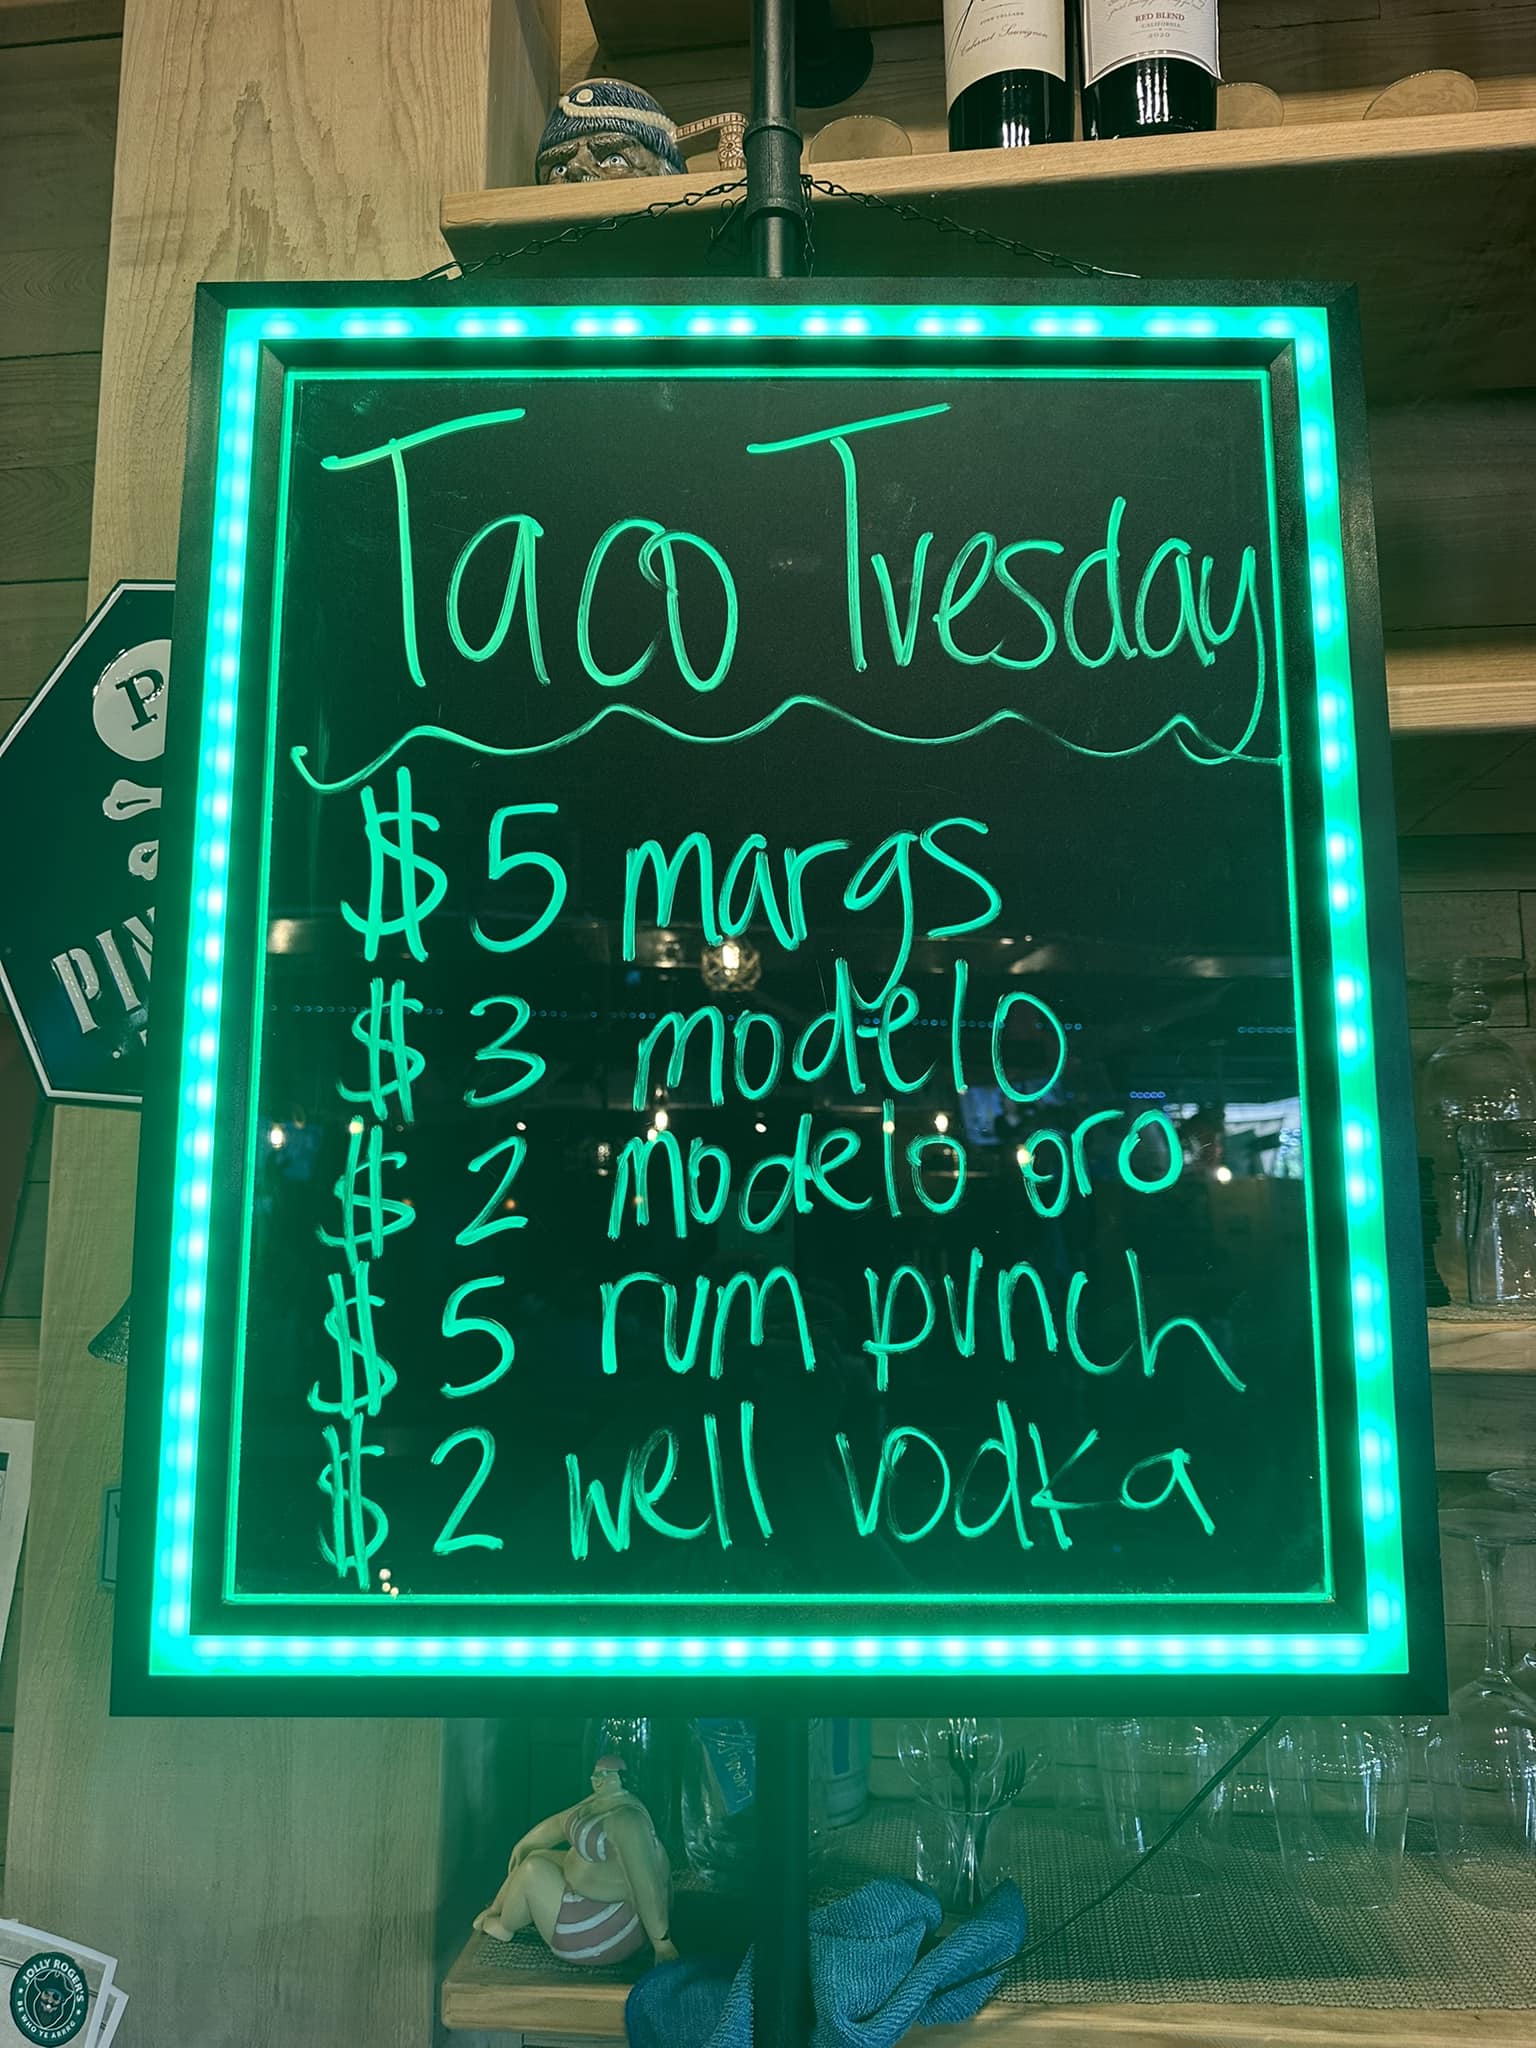 Cabernet Sauvignon
RED BLEND
CALIFORNIA
2020
Taco Tuesday
$5 margs
$3 modelo
$2 modelo oro
$5 rum punch
$2 well vodka
P
PIN
JOLLY ROGER'S